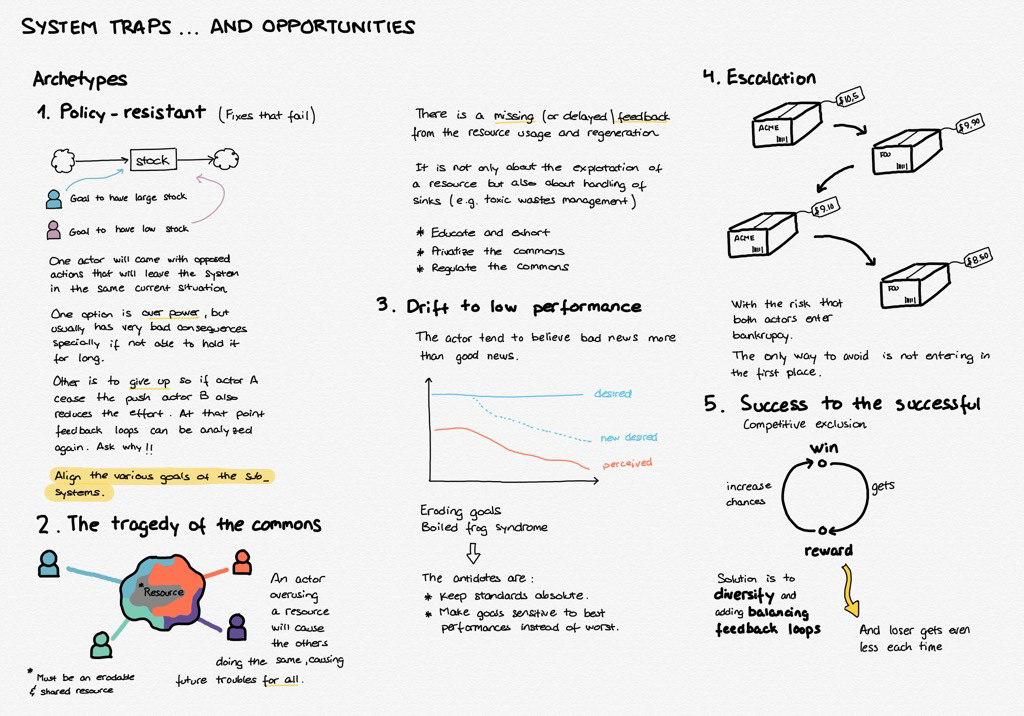 SYSTEM TRAPS ... AND OPPORTUNITIES
Archetypes
1. Policy-resistant (Fixes that fail)
stock
Goal to have large stock
Goal to have low stock
One actor will came with opposed
actions that will leave the system
in the same current situation.
One option is over power, but
usually has very bad consequences
specially if not able to hold it
for long.
Other is to give up so if actor A
cease the push actor B also
reduces the effort. At that point
feedback loops can be analyzed
again. Ask why!!
Align the various goals of the sub_
systems.
2. The tragedy of the commons
* Resource
An actor
overusing
a resource
will cause
the others
doing the same, causing
future troubles for all.
* Must be an erodable
& shared resource
There is a missing (or delayed) feedback
from the resource usage and regeneration
It is not only about the exploitation of
a resource but also about handling of
sinks (e.g. toxic wastes management)
* Educate and exhort
* Privatize the commons
* Regulate the commons
3. Drift to low performance
The actor tend to believe bad news more
than good news.
desired
new desired
perceived
Eroding goals
Boiled frog syndrome
The antidotes are:
* Keep standards absolute.
* Make goals sensitive to best
performances instead of worst.
4. Escalation
$10,5
ACME
$9,90
FOO
$9,10
ACME
$8.50
FOO
With the risk that
both actors enter
bankrupcy.
The only way to avoid is not entering in
the first place.
5. Success to the successful
Competitive exclusion
win
increase
chances
gets
reward
Solution is to
diversify and
adding balancing
feedback loops
And loser gets even
less each time